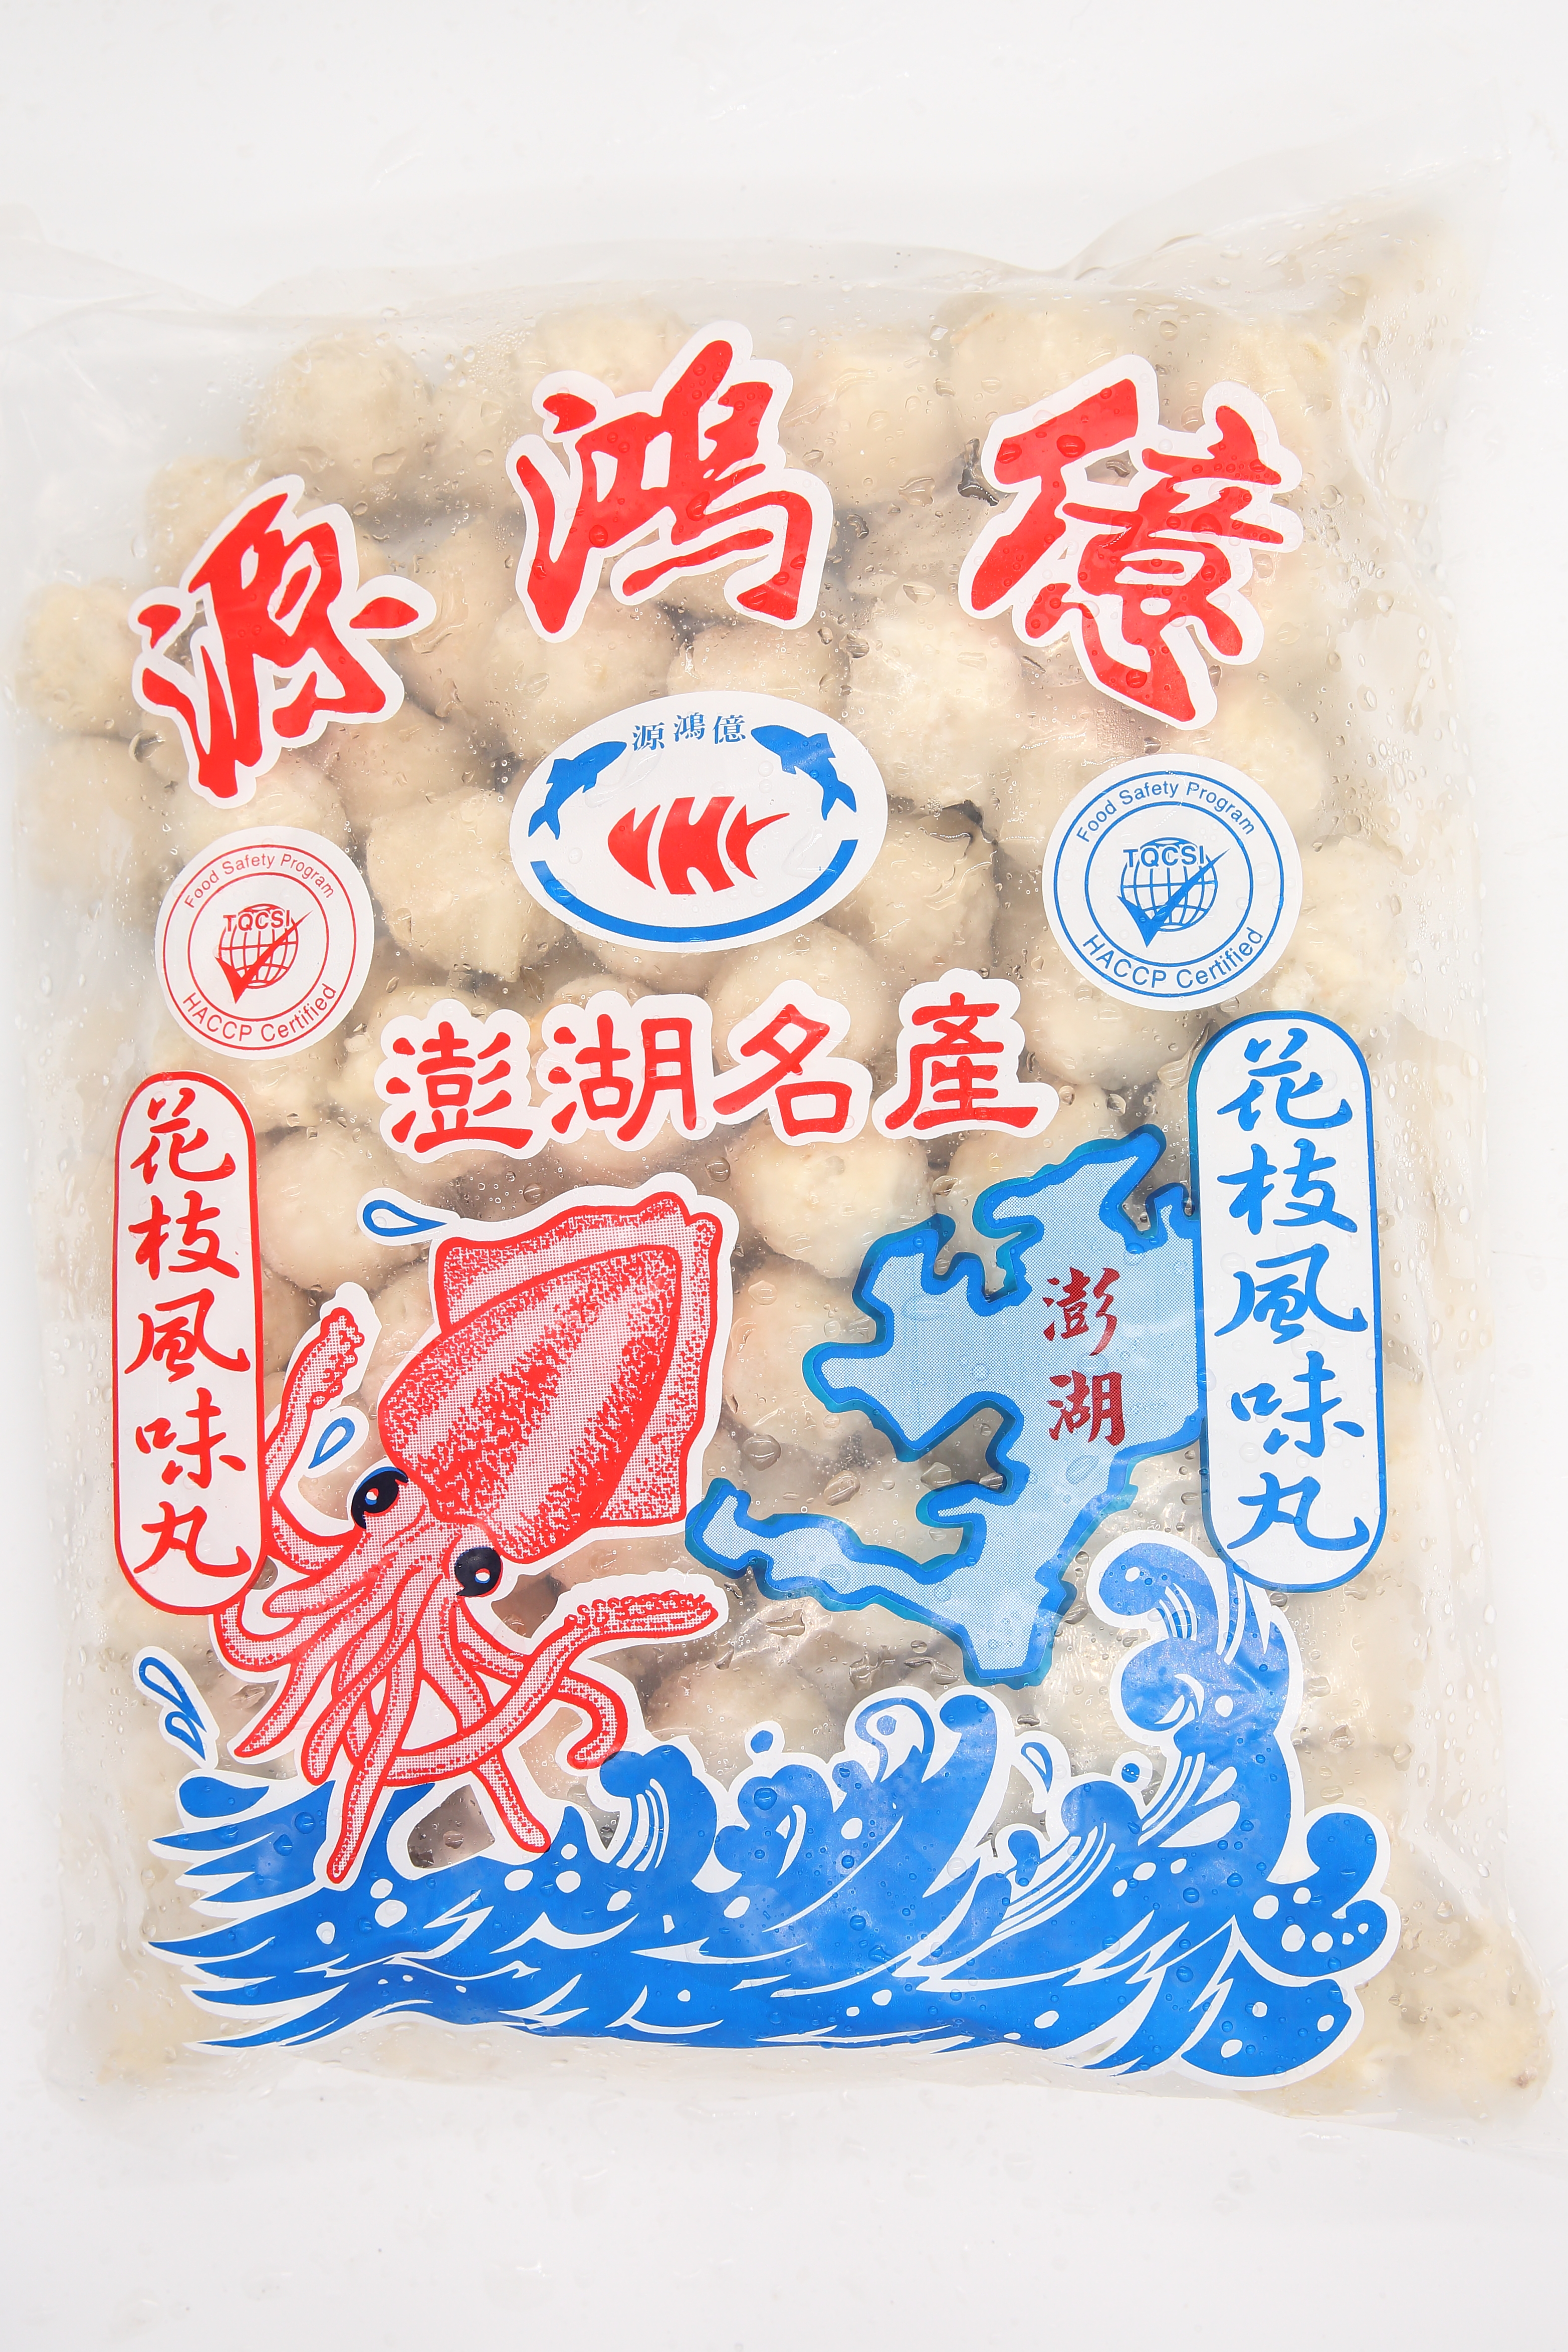 源鴻億
源鴻億
Food Safety Program
TQCSI
HACCP Certified
Food Safety Program
TQCSI
HACCP Certified
澎湖名產
花枝風味丸
澎湖
花枝風味丸